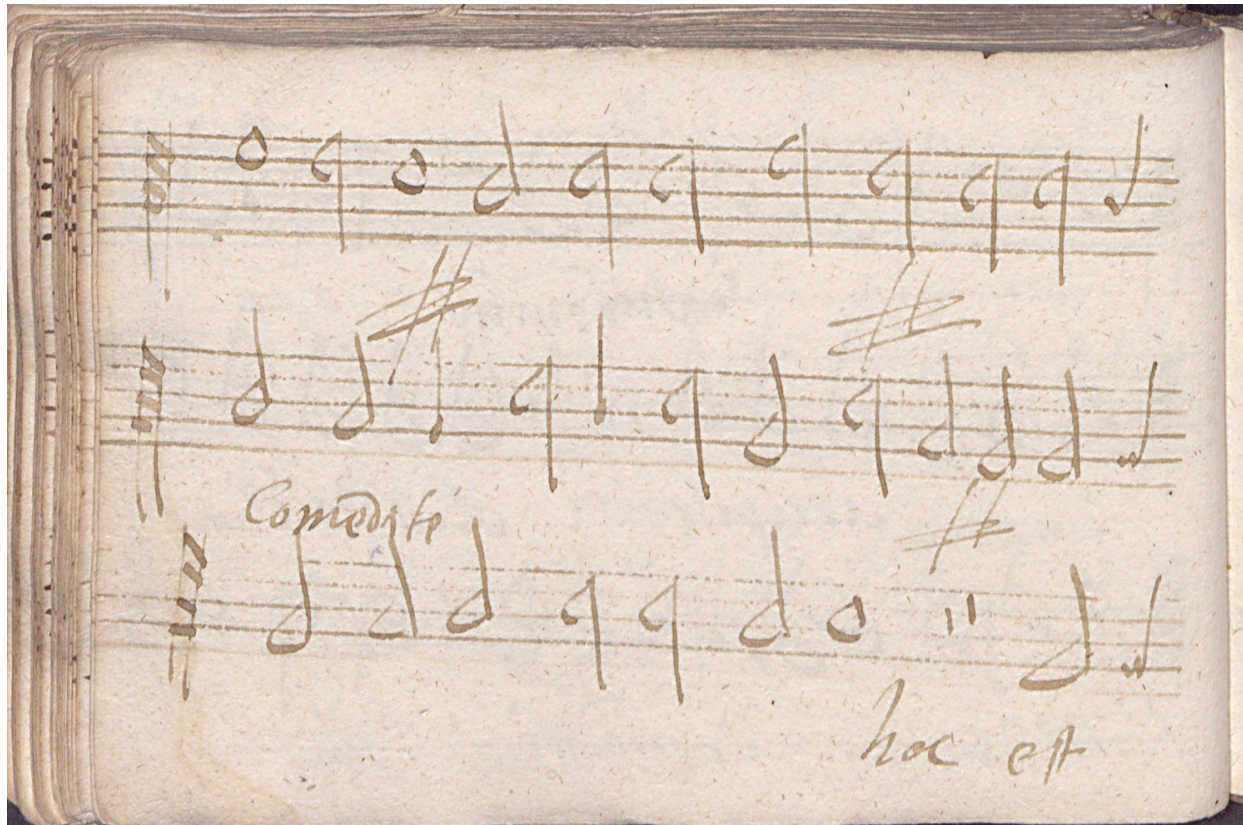 Comedite
hoc est